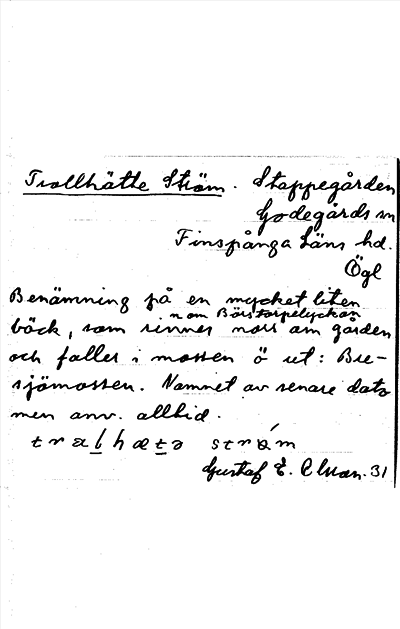 Trollhätte Ström. Stappegården
Godegårds sn
Finspånga Läns hd.
Ögl
Benämning på en mycket liten
n om Börstorpelyckan
bäck, som rinner norr om gården
och faller i mossen ö ut: Bre-
sjömossen. Namnet av senare dato
men anv. alltid.
Gustaf E. 31